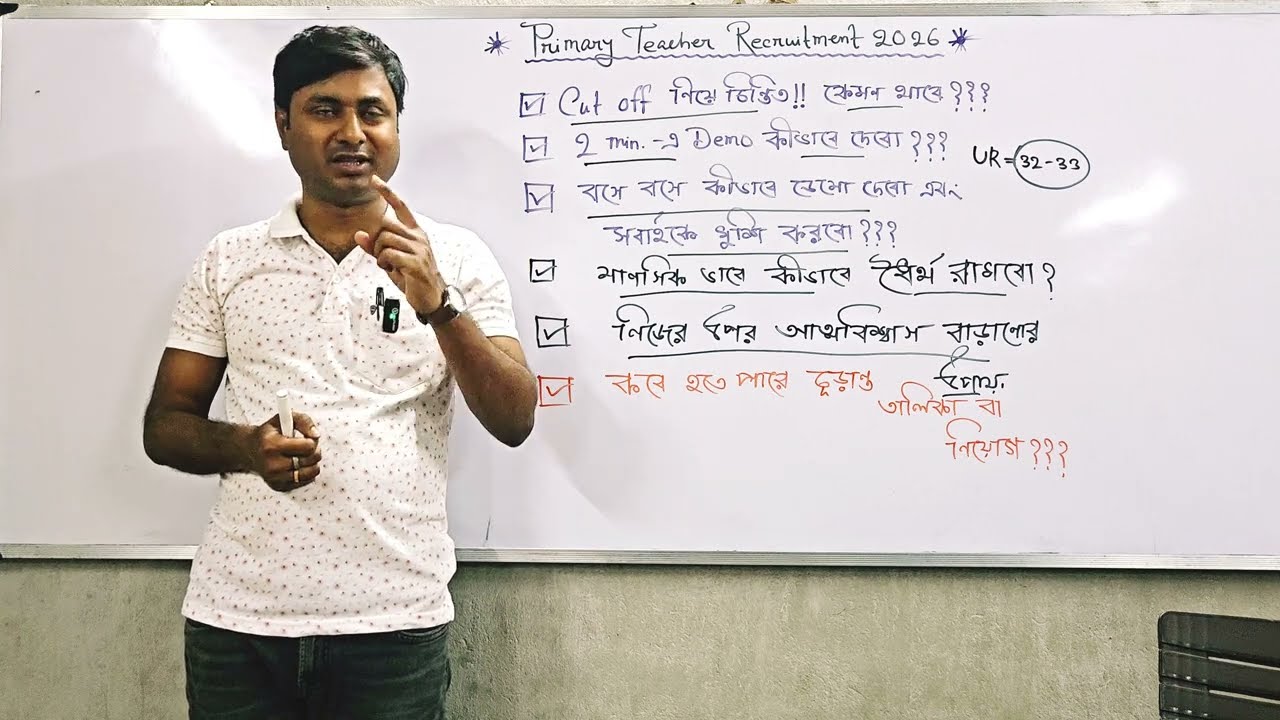 * Primary Teacher Recruitment 2026 *
Cut off নিয়ে চিন্তিত!! কেমন যাবে???
2 min.-এ Demo কীভাবে দেবো???
UR = 32-33
বসে বসে কীভাবে ডেমো দেবো এবং
সবাইকে খুশি করবো???
মানসিক ভাবে কীভাবে ধৈর্য রাখবো?
নিজের উপর আত্মবিশ্বাস বাড়ানোর
উপায়.
কবে হতে পারে চূড়ান্ত
তালিকা বা
নিয়োগ???